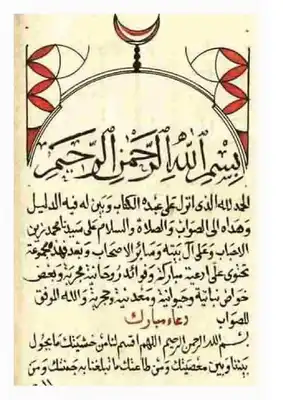 بسم الله الرحمن الرحيم
الحمد لله الذى انزل على عبده الكتاب وبين له فيه الدليل
وهداه الى الصواب والصلاة والسلام على سيدنا محمد زين
الاحباب وعلى آل بيته وسائر الاصحاب وبعد فهذه مجموعة
تحتوى على ادعية مباركة وفوائد روحانية مجربة وبعض
خواص نباتية وحيوانية ومعدنية ومجربة والله الموفق
للصواب
دعاء مبارك
بسم الله الرحمن الرحيم اللهم اقسم لنا من خشيتك ما يحول
بيننا وبين معصيتك ومن طاعتك ما تبلغنا به جنتك ومن